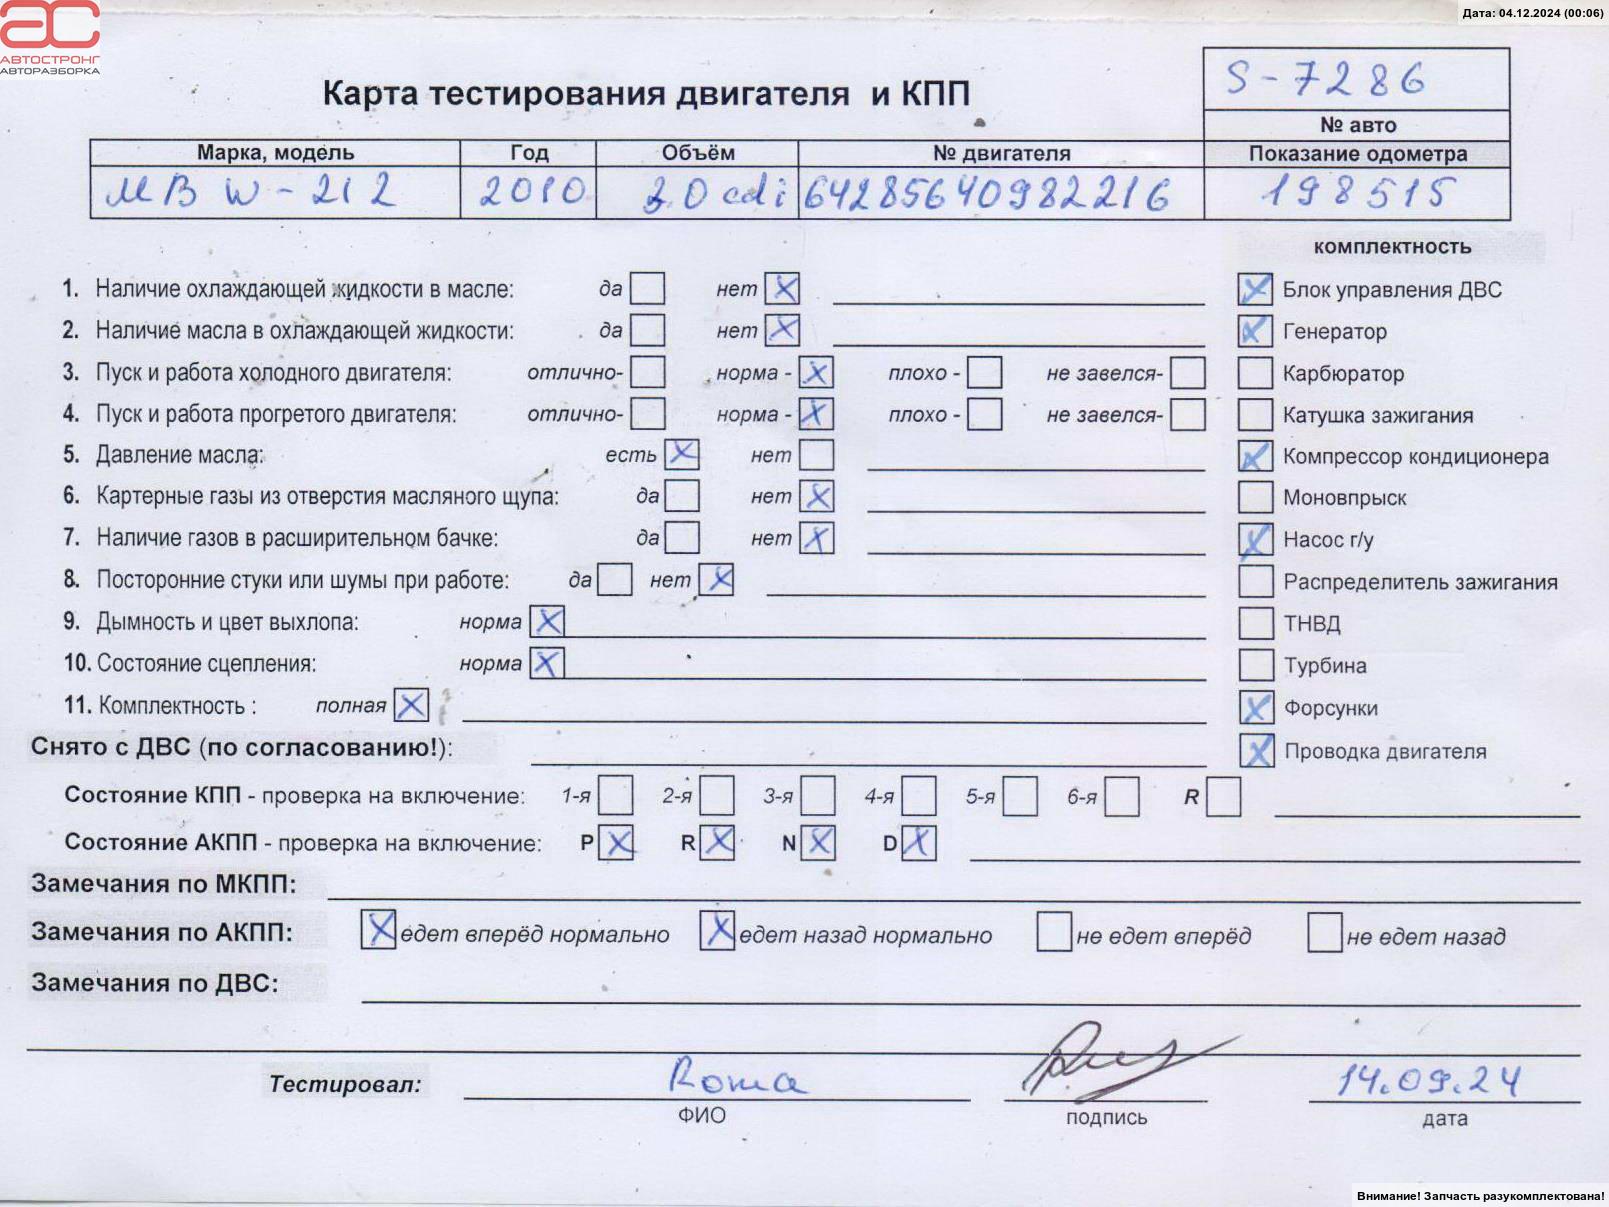 Дата: 04.12.2024 (00:06)
АВТОСТРОНГ
АВТОРАЗБОРКА
Карта тестирования двигателя и КПП
S-7286
№ авто
Марка, модель Год Объём № двигателя Показание одометра
МВ W-212 2010 3.0 cdi 64285640982216 198515
комплектность
1. Наличие охлаждающей жидкости в масле: да нет Блок управления ДВС
2. Наличие масла в охлаждающей жидкости: да нет Генератор
3. Пуск и работа холодного двигателя: отлично- норма - плохо - не завелся- Карбюратор
4. Пуск и работа прогретого двигателя: отлично- норма - плохо - не завелся- Катушка зажигания
5. Давление масла: есть нет Компрессор кондиционера
6. Картерные газы из отверстия масляного щупа: да нет Моновпрыск
7. Наличие газов в расширительном бачке: да нет Насос г/у
8. Посторонние стуки или шумы при работе: да нет Распределитель зажигания
9. Дымность и цвет выхлопа: норма ТНВД
10. Состояние сцепления: норма Турбина
11. Комплектность : полная Форсунки
Снято с ДВС (по согласованию!): Проводка двигателя
Состояние КПП - проверка на включение: 1-я 2-я 3-я 4-я 5-я 6-я R
Состояние АКПП - проверка на включение: P R N D
Замечания по МКПП:
Замечания по АКПП: едет вперёд нормально едет назад нормально не едет вперёд не едет назад
Замечания по ДВС:
Тестировал: Roma 14.09.24
ФИО подпись дата
Внимание! Запчасть разукомплектована!